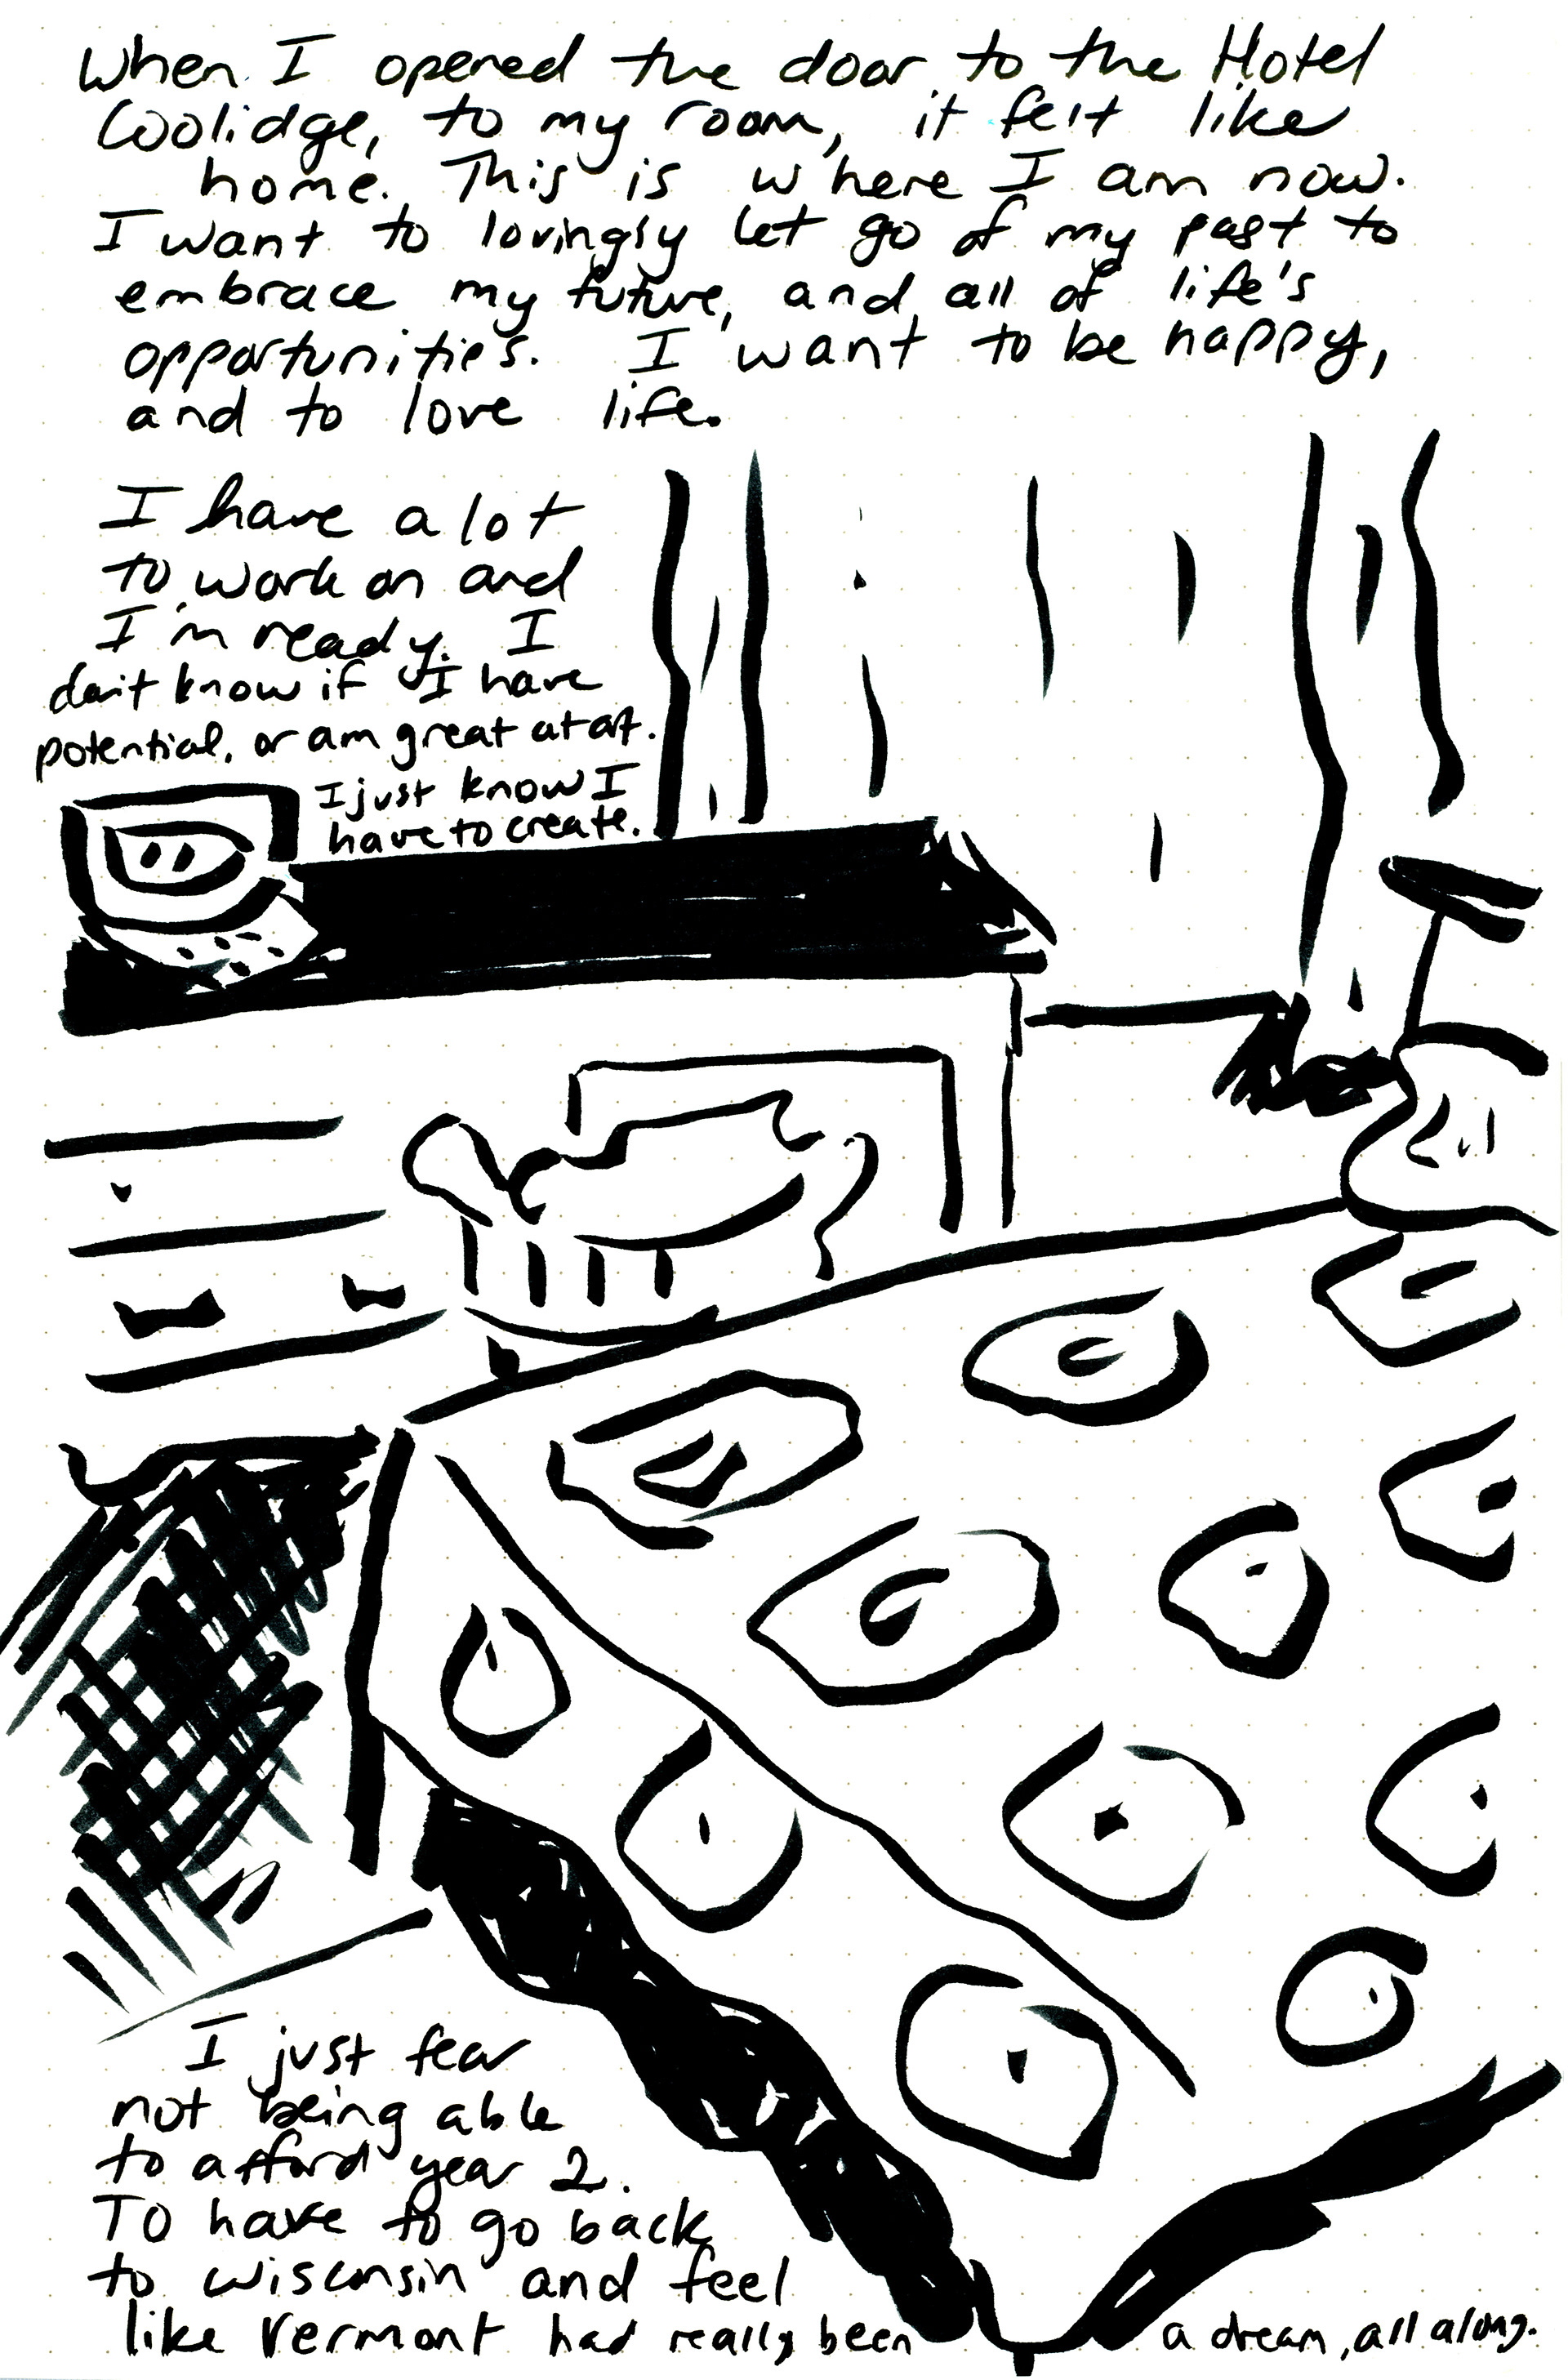 When I opened the door to the Hotel
Coolidge, to my room, it felt like
home. This is where I am now.
I want to lovingly let go of my past to
embrace my future, and all of life's
opportunities. I want to be happy,
and to love life.
I have a lot
to work on and
I'm ready. I
don't know if I have
potential, or am great at art.
I just know I
have to create.
I just fear
not being able
to afford year 2.
To have to go back
to wisconsin and feel
like Vermont had really been a dream, all along.